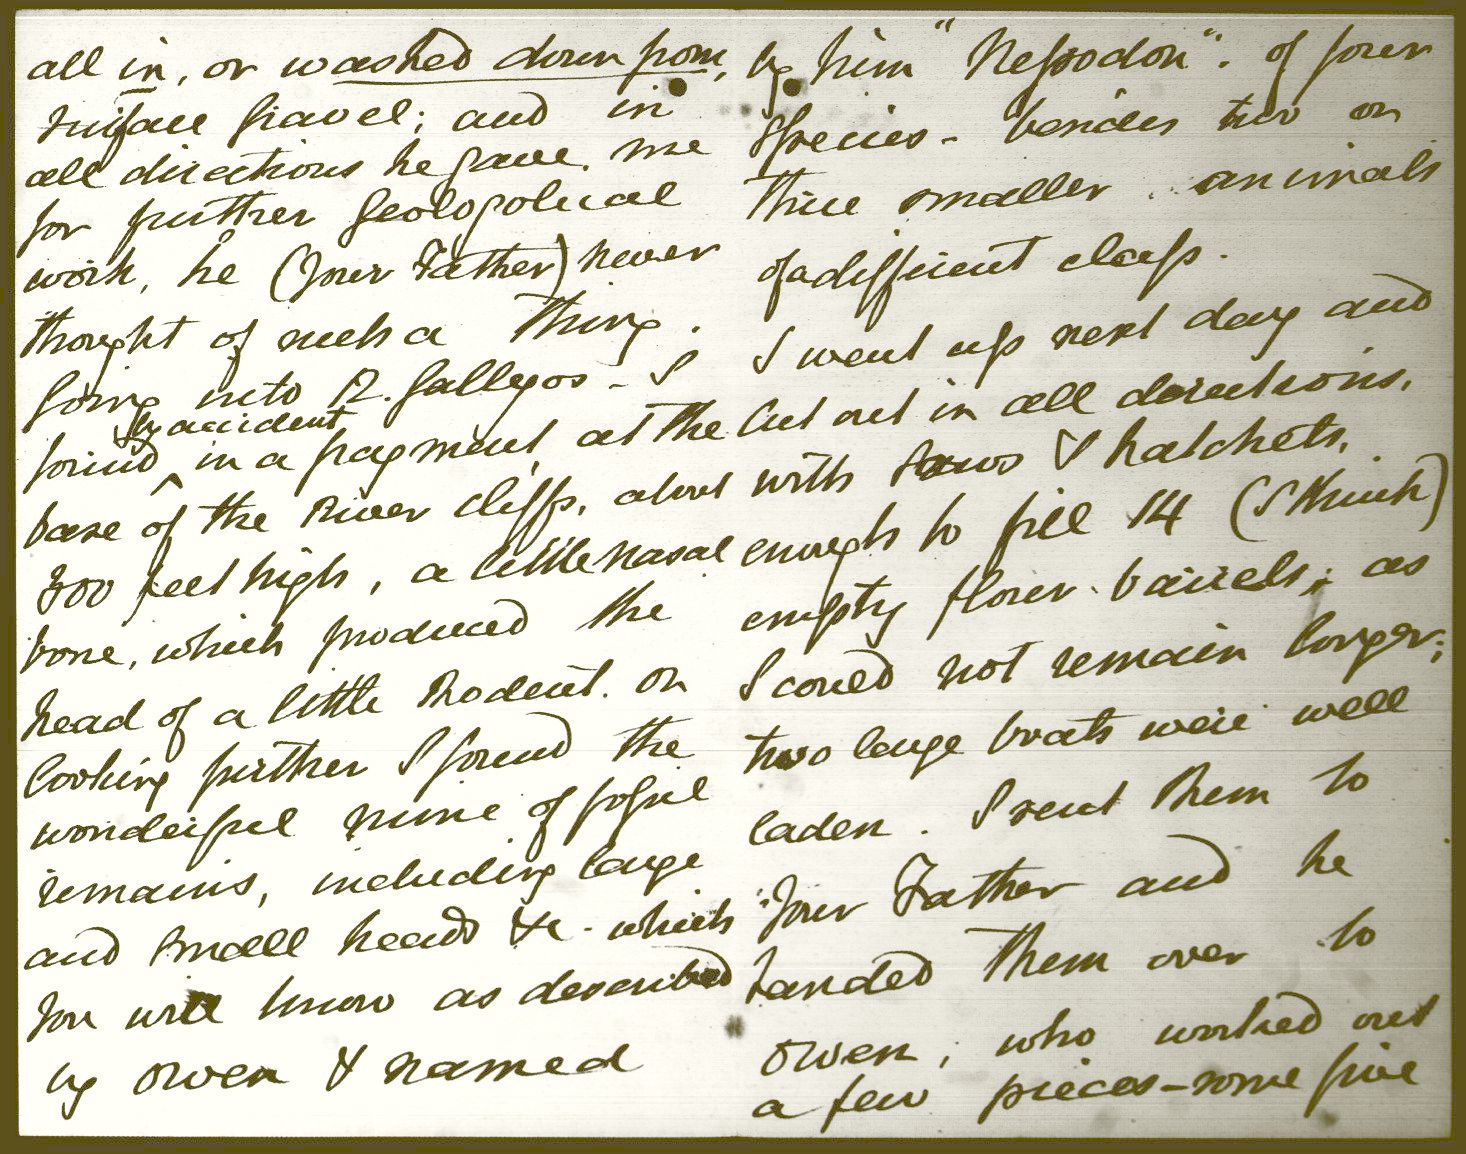 all in, or washed down from,
surface gravel; and in
all directions he gave me
for further geological
work, he (your Father) never
thought of such a thing.
Going into R. Gallegos - I
by accident
found ^ in a fragment, at the
base of the River cliffs, about
200 feet high, a little nasal
bone, which produced the
head of a little Rodent. on
looking further I found the
wonderful mine of fossil
remains, including large
and small heads &c. which
you will know as described
by Owen & named
by him "Nesodon". of four
species - besides two or
three smaller animals
of a different class.
I went up next day and
cut out in all directions,
with saws & hatchets,
enough to fill 14 (I think)
empty flour barrels; as
I could not remain longer;
two large boats were well
laden. I sent them to
your Father and he
handed them over to
Owen, who worked out
a few pieces - some five